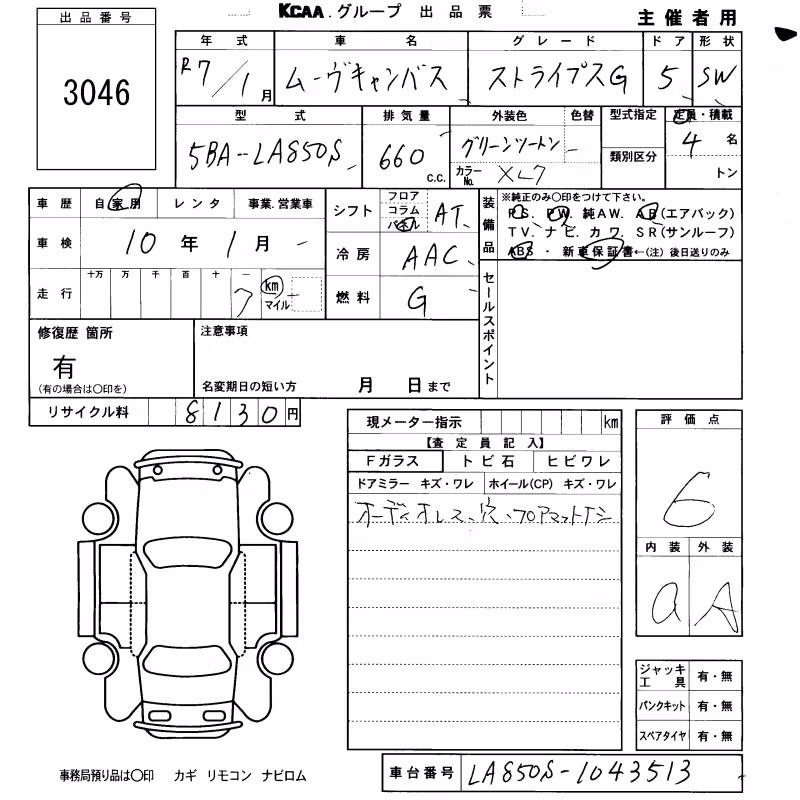 KCAA.グループ 出品票
主催者用
出品番号
3046
年式 車名 グレード ドア 形状
R7/1月 ムーヴキャンバス ストライプスG 5 SW
型式 排気量 外装色 色替 型式指定 定員・積載
5BA-LA850S 660 c.c. グリーンツートン 類別区分 4名
カラーNo. XL7 トン
車歴 自家用 レンタ 事業.営業車
車検 10年1月
走行 十万 万 千 百 十 一
7 km マイル
シフト フロア コラム パネル AT
冷房 AAC
燃料 G
装備品
※純正のみ〇印をつけて下さい。
P.S. P.W. 純AW. AB(エアバック)
TV. ナビ. カワ. SR(サンルーフ)
ABS ・ 新車保証書←(注) 後日送りのみ
セールスポイント
修復歴 箇所
有
(有の場合は〇印を)
注意事項
名変期日の短い方 月 日まで
リサイクル料 8130円
現メーター指示 km
【査定員記入】
Fガラス トビ石 ヒビワレ
ドアミラー キズ・ワレ ホイール(CP) キズ・ワレ
オーディオレス、穴、フロアマットナシ
評価点
6
内装 外装
a A
ジャッキ工具 有・無
パンクキット 有・無
スペアタイヤ 有・無
事務局預り品は〇印 カギ リモコン ナビロム
車台番号 LA850S-1043513